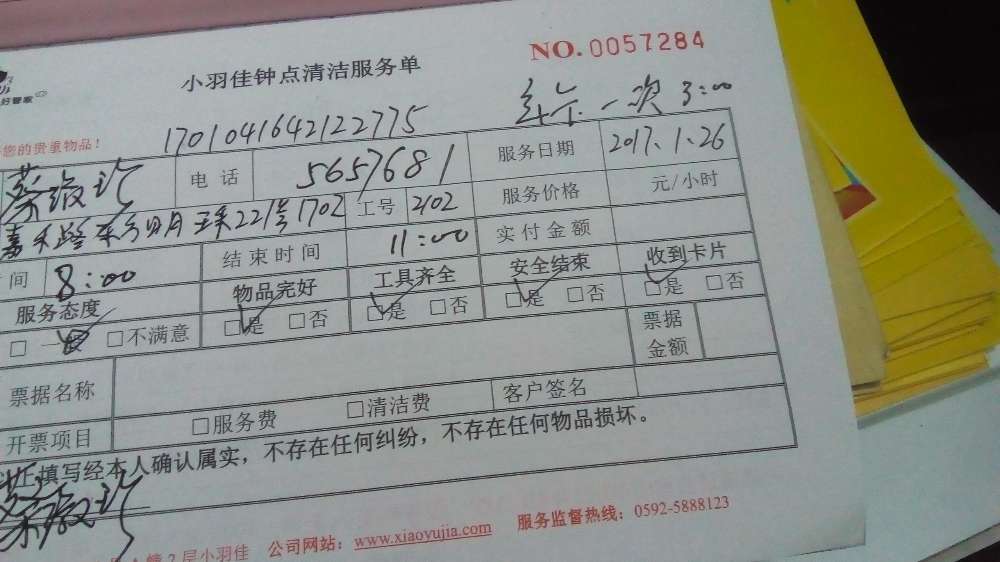 NO.0057284
小羽佳钟点清洁服务单
好管家
您的贵重物品！ 1701041642122775 一次 3:00
电话 5657681 服务日期 2017.1.26
嘉禾路 221号1702 工号 2102 服务价格 元/小时
间 8:00 结束时间 11:00 实付金额
服务态度 物品完好 工具齐全 安全结束 收到卡片
□ 一般 □不满意 □是 □否 □是 □否 □是 □否 □是 □否
票据名称 票据金额
开票项目 □服务费 □清洁费 客户签名
以上填写经本人确认属实，不存在任何纠纷，不存在任何物品损坏。
2层小羽佳 公司网站：www.xiaoyujia.com 服务监督热线：0592-5888123